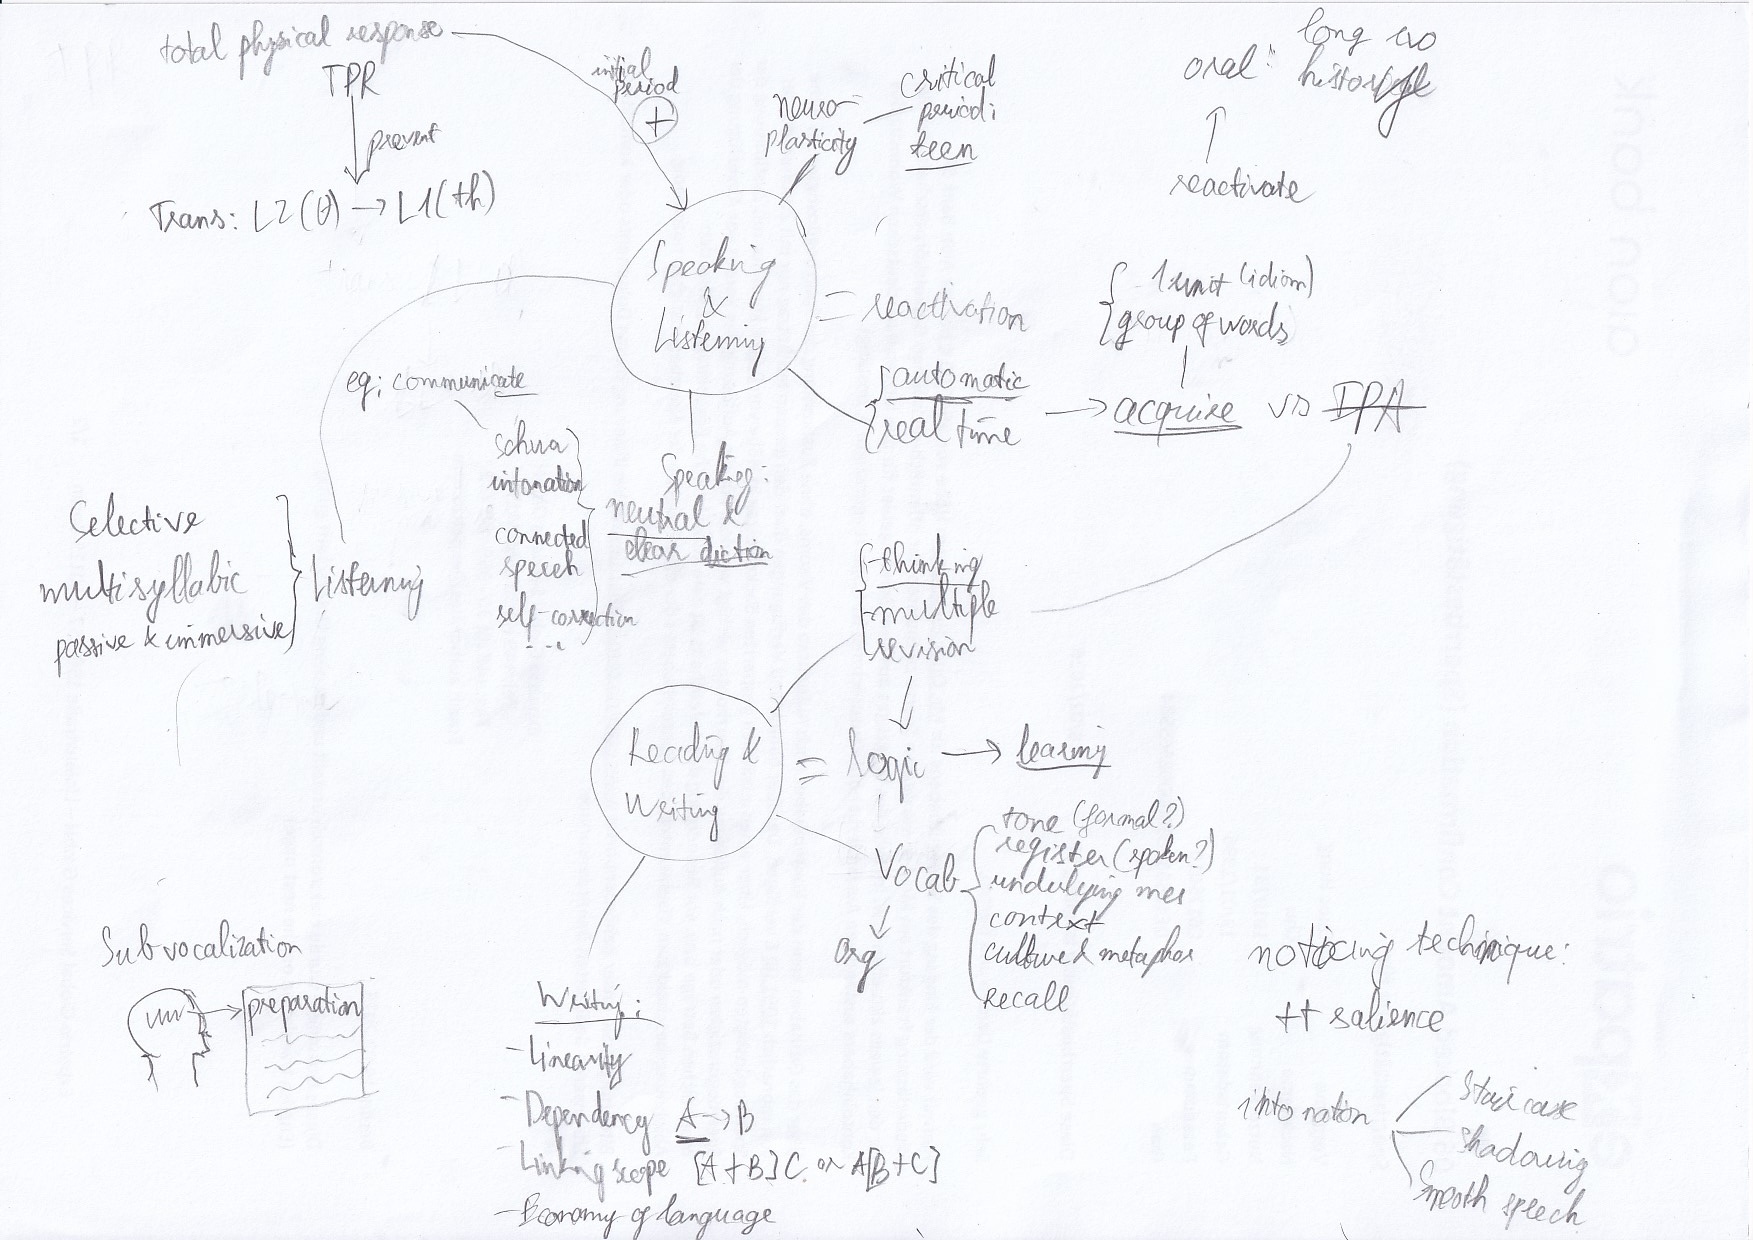 total physical response
TPR
prevent
Trans: L2 (θ) → L1 (th)
initial
period
+
neuro-
plasticity
critical
period:
teen
oral:
long evo
history
reactivate
Speaking
&
Listening
= reactivation
1 unit (idiom)
group of words
automatic
real time
→ acquire vs IPA
eg: communicate
schwa
intonation
connected
speech
self-correction
...
Speaking:
neutral &
clear diction
Selective
multisyllabic
passive & immersive
Listening
- thinking
- multiple
revision
Reading &
Writing
= logic → learning
Vocab
tone (formal?)
register (spoken?)
underlying mes
context
culture & metaphor
Recall
org
Subvocalization
preparation
Writing:
- Linearity
- Dependency A → B
- Linking scope [A + B] C or A [B + C]
- Economy of language
noticing technique:
++ salience
intonation
staircase
shadowing
smooth speech